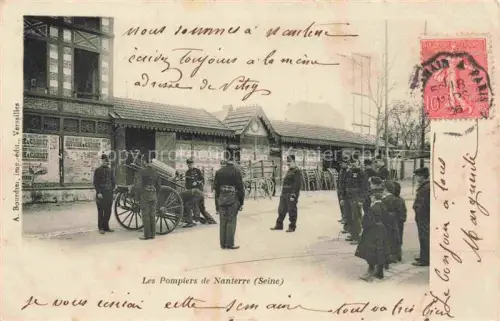 nous sommes à nanterre
écrivez toujours à la même
adresse de Vitry
A. Bourdier, imp.-édit., Versailles
10
Les Pompiers de Nanterre (Seine)
je vous écrirai cette semaine tout va bien
le bonjour à tous
Marguerite